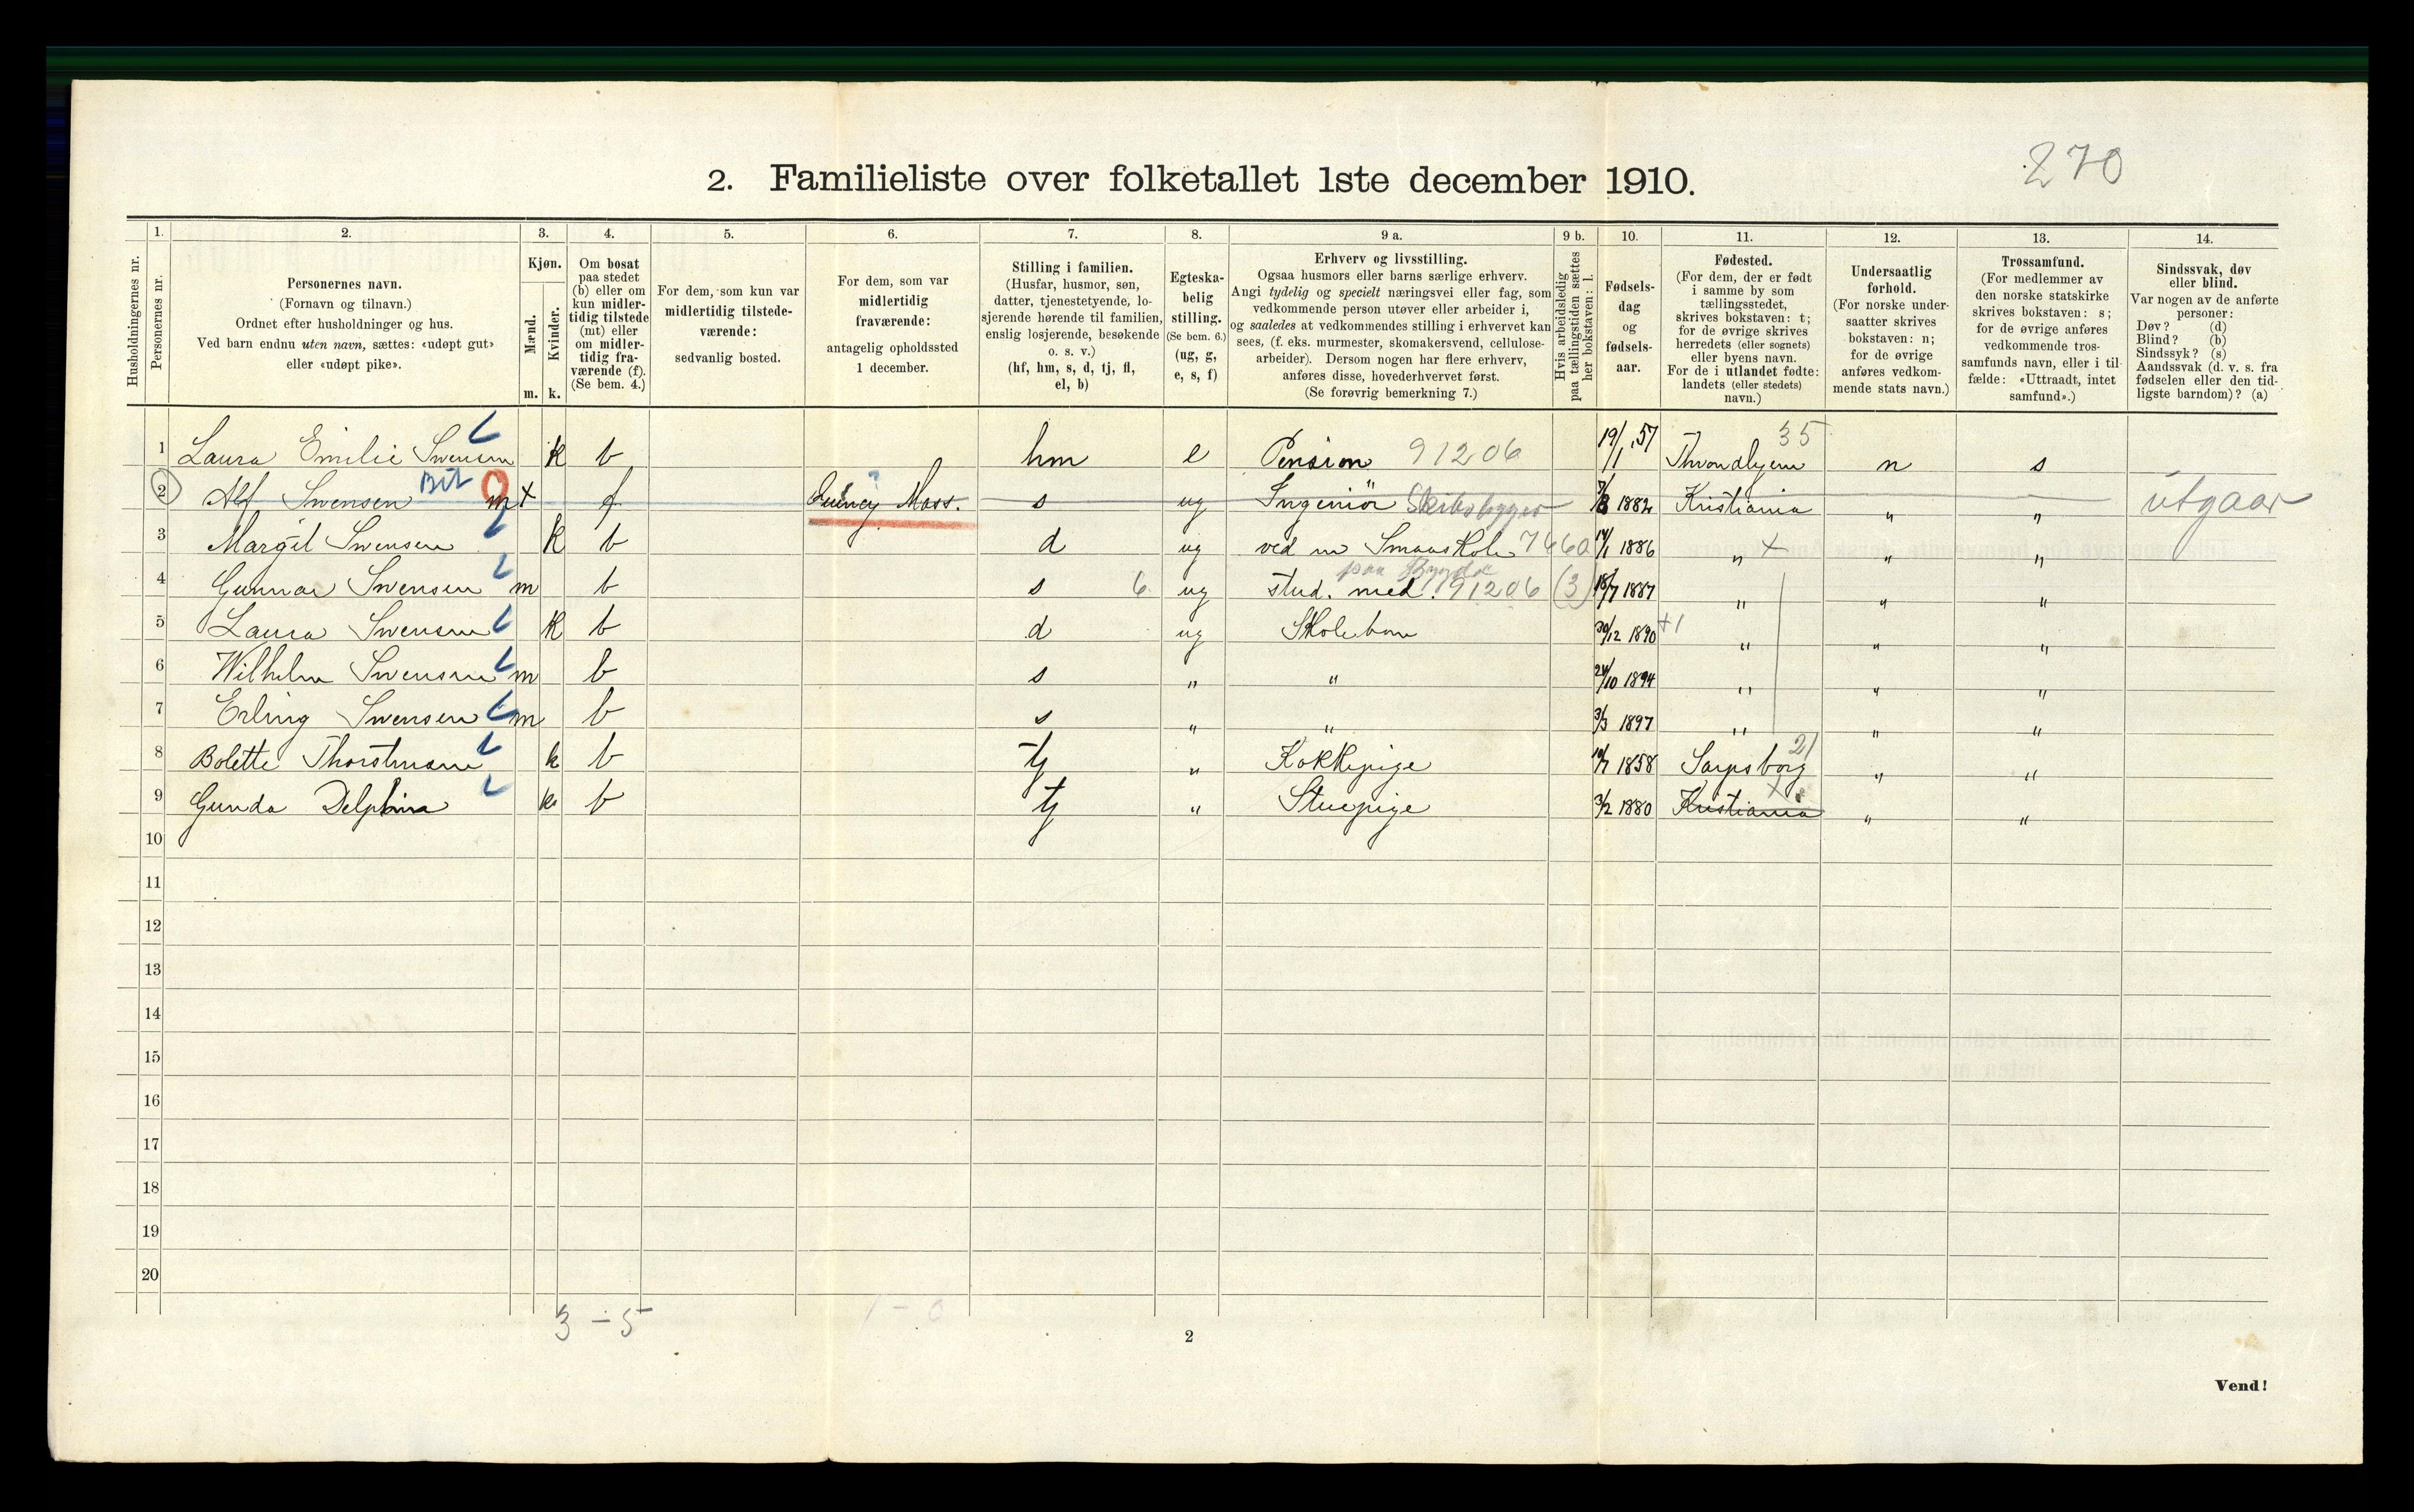 270
2. Familieliste over folketallet 1ste december 1910.
Husholdningernes nr.
1.
Personernes nr.
2.
Personernes navn.
(Fornavn og tilnavn.)
Ordnet efter husholdninger og hus.
Ved barn endnu uten navn, sættes: «udøpt gut»
eller «udøpt pike».
3.
Kjøn.
Mænd.
Kvinder.
m. k.
4.
Om bosat
paa stedet
(b) eller om
kun midler-
tidig tilstede
(mt) eller
om midler-
tidig fra-
værende (f).
(Se bem. 4.)
5.
For dem, som kun var
midlertidig tilstede-
værende:
sedvanlig bosted.
6.
For dem, som var
midlertidig
fraværende:
antagelig opholdssted
1 december.
7.
Stilling i familien.
(Husfar, husmor, søn,
datter, tjenestetyende, lo-
sjerende hørende til familien,
enslig losjerende, besøkende
o. s. v.)
(hf, hm, s, d, tj, fl,
el, b)
8.
Egteska-
belig
stilling.
(Se bem. 6.)
(ug, g,
e, s, f)
9 a.
Erhverv og livsstilling.
Ogsaa husmors eller barns særlige erhverv.
Angi tydelig og specielt næringsvei eller fag, som
vedkommende person utøver eller arbeider i,
og saaledes at vedkommendes stilling i erhvervet kan
sees, (f. eks. murmester, skomakersvend, cellulose-
arbeider). Dersom nogen har flere erhverv,
anføres disse, hovederhvervet først.
(Se forøvrig bemerkning 7.)
9 b.
Hvis arbeidsledig
paa tællingstiden sættes
her bokstaven: l.
10.
Fødsels-
dag
og
fødsels-
aar.
11.
Fødested.
(For dem, der er født
i samme by som
tællingsstedet,
skrives bokstaven: t;
for de øvrige skrives
herredets (eller sognets)
eller byens navn.
For de i utlandet fødte:
landets (eller stedets)
navn.)
12.
Undersaatlig
forhold.
(For norske under-
saatter skrives
bokstaven: n;
for de øvrige
anføres vedkom-
mende stats navn.)
13.
Trossamfund.
(For medlemmer av
den norske statskirke
skrives bokstaven: s;
for de øvrige anføres
vedkommende tros-
samfunds navn, eller i til-
fælde: «Uttraadt, intet
samfund».)
14.
Sindssvak, døv
eller blind.
Var nogen av de anførte
personer:
Døv? (d)
Blind? (b)
Sindssyk? (s)
Aandssvak (d. v. s. fra
fødselen eller den tid-
ligste barndom)? (a)
1 Laura Emilie Swensen k b hm e Pension 91206 19/1 57 Throndhjem 35 n s
2 Alf Swensen m x f Quincy Mass. s ug Ingeniör Skibsbygger 1882 Kristiania " " utgaar
3 Margit Swensen k b d ug ved en Smaaskole 7660 14/1 1886 " x " "
4 Gunnar Swensen m b s 6 ug stud. med. 91206 (3) 18/7 1887 " " "
5 Laura Swensen k b d ug Skolebarn 30/12 1890 +1 " " "
6 Wilhelm Swensen m b s " " 24/10 1894 " " "
7 Erling Swensen m b s " " 3/3 1897 " " "
8 Bolette Thorstmann k b tj " Kokkepige 1858 Sarpsborg 21 " "
9 Gunda Delphina k b tj " Stuepige 3/2 1880 Kristiania x " "
10
11
12
13
14
15
16
17
18
19
20
3 - 5 1 - 0
2
Vend!